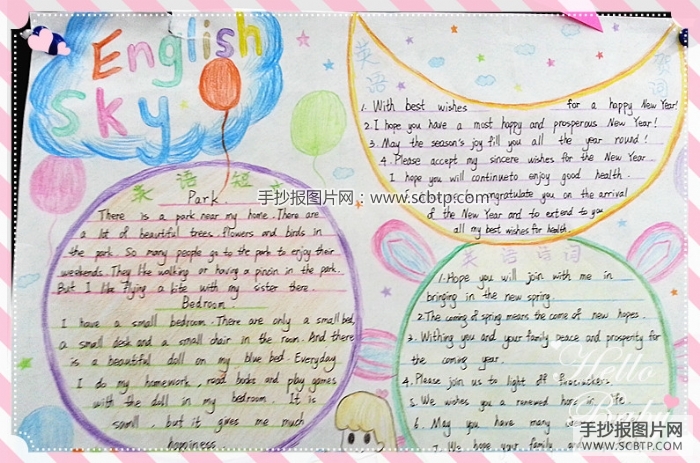 English
Sky
英语短文
Park.
There is a park near my home. There are
a lot of beautiful trees, flowers and birds in
the park. So many people go to the park to enjoy their
weekends. They like walking or having a pincin in the park.
But I like flying a kite with my sister there.
Bedroom.
I have a small bedroom. There are only a small bed,
a small desk and a small chair in the room. And there
is a beautiful doll on my blue bed. Everyday
I do my homework, read books and play games
with the doll in my bedroom. It is
small, but it gives me much
happiness.
英语
贺词
1. With best wishes ________ for a happy New Year!
2. I hope you have a most happy and prosperous New Year!
3. May the season's joy fill you all the year round!
4. Please accept my sincere wishes for the New Year
I hope you will continueto enjoy good health.
congratulate you on the arrival
of the New Year and to extend to you
all my best wishes for health.
英语
1. Hope you will join with me in
bringing in the new spring.
2. The coming of spring means the come of new hopes.
3. Withing you and your family peace and prosperity for
the coming year.
4. Please join us to light off firecrackers.
5. We wishes you a renewed hope in life.
6. May you have many
7. We hope your family
手抄报图片网：www.scbtp.com
Hello
Baby
手抄报图片网
WWW.SCBTP.COM